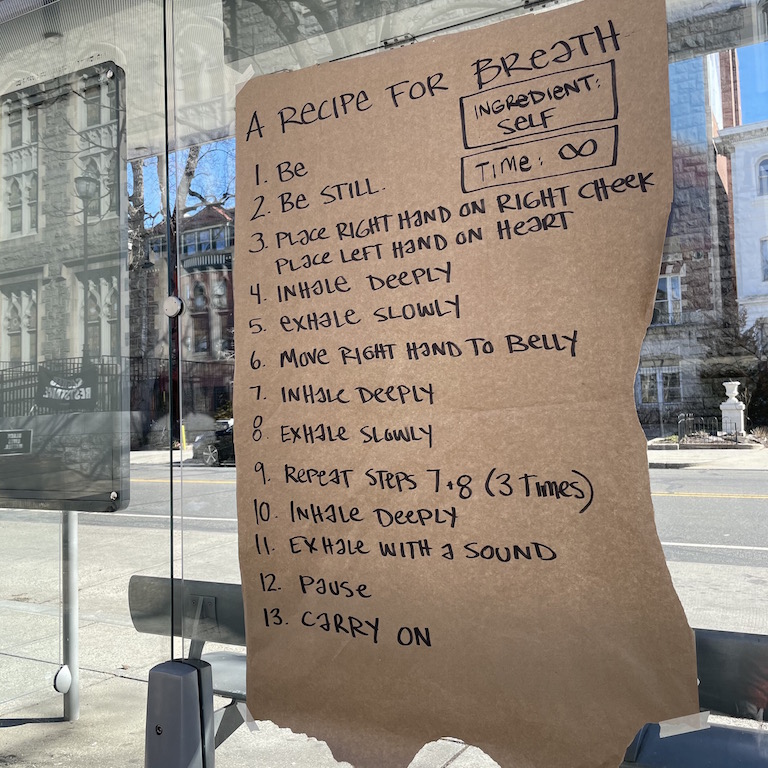 A RECIPE FOR BREATH
INGREDIENT:
SELF
TIME: ∞
1. Be
2. Be STILL.
3. PLACE RIGHT HAND ON RIGHT CHEEK
PLACE LEFT HAND ON HEART
4. INHALE DEEPLY
5. EXHALE SLOWLY
6. MOVE RIGHT HAND TO BELLY
7. INHALE DEEPLY
8. EXHALE SLOWLY
9. REPEAT STEPS 7+8 (3 TIMES)
10. INHALE DEEPLY
11. EXHALE WITH A SOUND
12. PAUSE
13. CARRY ON